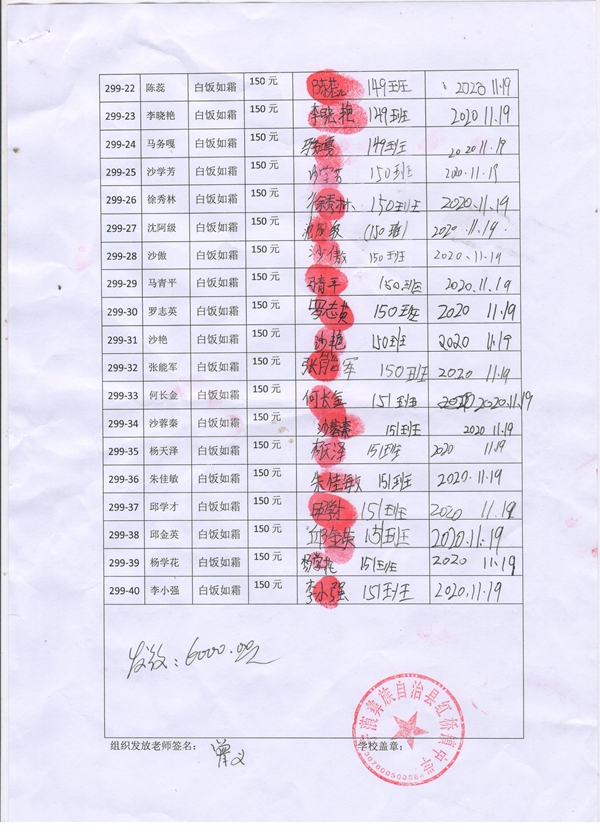 299-22 陈蕊 白饭如霜 150 元 陈蕊 149班 2020 11.19
299-23 李晓艳 白饭如霜 150 元 李晓艳 149班 2020 11.19
299-24 马务嘎 白饭如霜 150 元 149班 2020 11.19
299-25 沙学芳 白饭如霜 150 元 沙学芳 150班 2020.11.19
299-26 徐秀林 白饭如霜 150 元 徐秀林 150班 2020.11.19
299-27 沈阿级 白饭如霜 150 元 沈阿级 (150班) 2020.11.19
299-28 沙傲 白饭如霜 150 元 沙傲 150班 2020.11.19
299-29 马青平 白饭如霜 150 元 马青平 150班 2020.11.19
299-30 罗志英 白饭如霜 150 元 罗志英 150班 2020 11.19
299-31 沙艳 白饭如霜 150 元 沙艳 150班 2020 11.19
299-32 张能军 白饭如霜 150 元 张能军 150班 2020 11.19
299-33 何长金 白饭如霜 150 元 何长金 151班 2020.11.19
299-34 沙蓉秦 白饭如霜 150 元 沙蓉秦 151班 2020 11.19
299-35 杨天泽 白饭如霜 150 元 杨天泽 151班 2020 11.19
299-36 朱佳敏 白饭如霜 150 元 朱佳敏 151班 2020.11.19
299-37 邱学才 白饭如霜 150 元 邱学才 151班 2020 11.19
299-38 邱金英 白饭如霜 150 元 邱金英 151班 2020.11.19
299-39 杨学花 白饭如霜 150 元 杨学花 151班 2020 11.19
299-40 李小强 白饭如霜 150 元 李小强 151班 2020.11.19
发放：6000.00元
组织发放老师签名： 学校盖章：
彝族自治县红桥镇中学